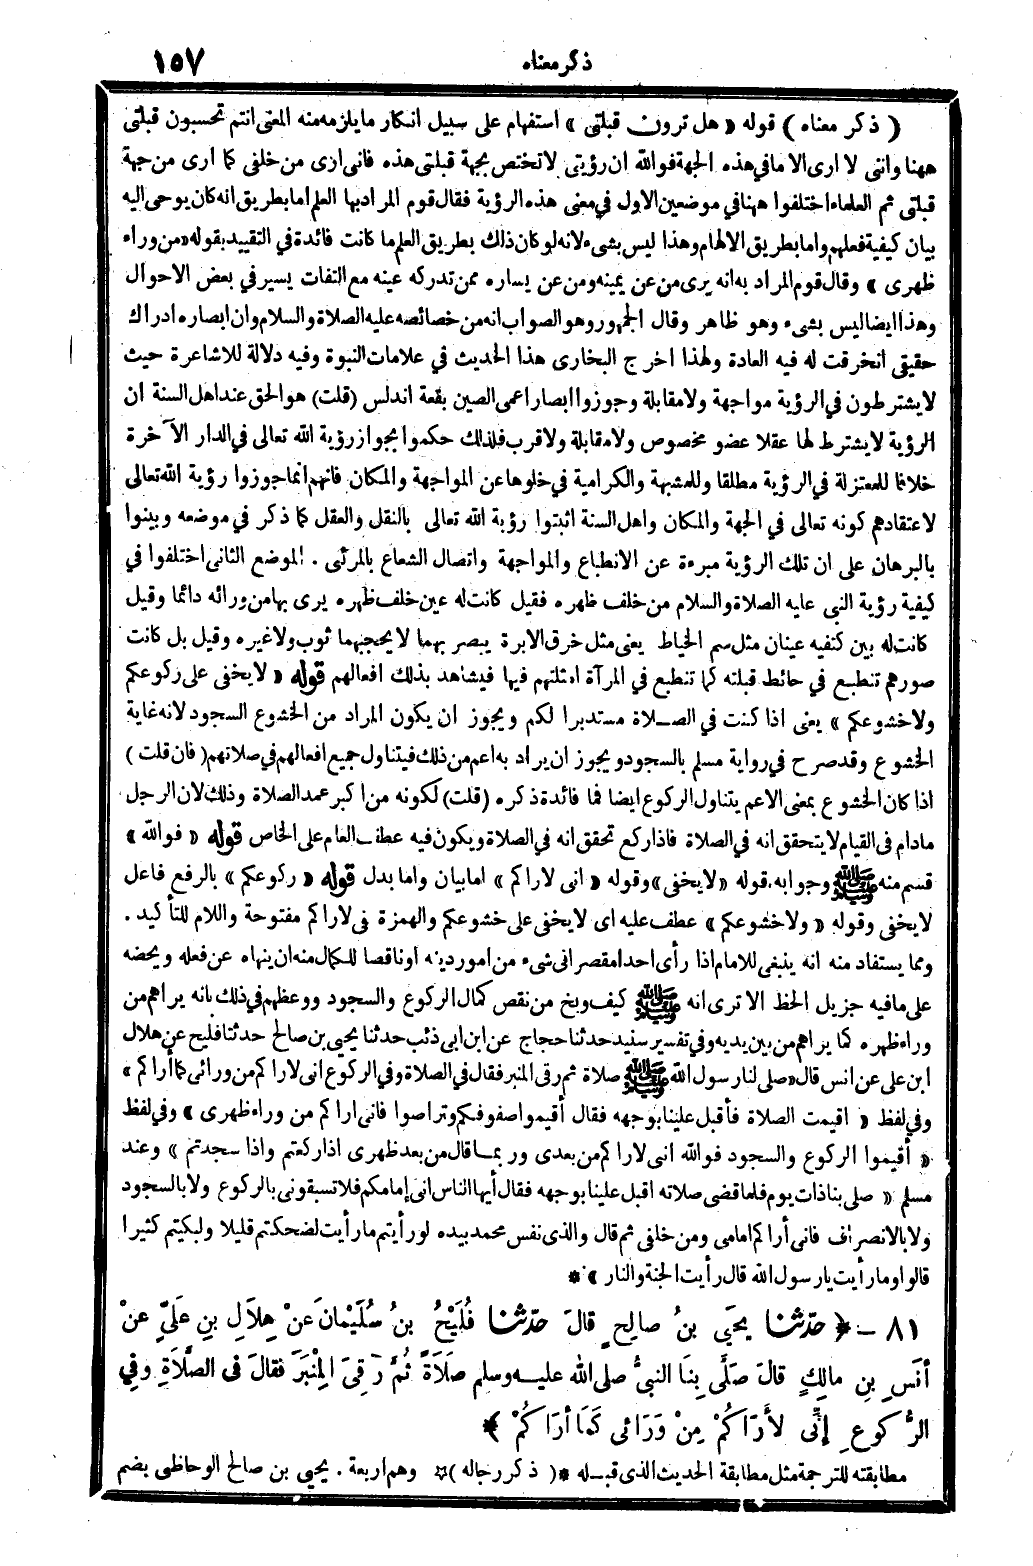 ذكر معناه
١٥٧
( ذكر معناه ) قوله « هل ترون قبلتي » استفهام على سبيل انكار ما يلزمه منه المعنى انتم تحسبون قبلتي
ههنا وانني لا ارى الا ما في هذه الجهة فوالله ان رؤيتي لا تختص بجهة قبلتي هذه فاني ارى من خلفي كما ارى من جهة
قبلتي ثم العلماء اختلفوا ههنا في موضعين الاول في معنى هذه الرؤية فقال قوم المراد بها العلم اما بطريق انه كان يوحى اليه
بيان كيفية فعلهم واما بطريق الالهام وهذا ليس بشىء لانه لو كان ذلك بطريق العلم ما كانت فائدة في التقييد بقوله « من وراء
ظهرى » وقال قوم المراد به انه يرى من عن يمينه ومن عن يساره ممن تدركه عينه مع التفات يسير في بعض الاحوال
وهذا ايضا ليس بشىء وهو ظاهر وقال الجمهور وهو الصواب انه من خصائصه عليه الصلاة والسلام وان ابصاره ادراك
حقيقي انخرقت له فيه العادة ولهذا اخرج البخارى هذا الحديث في علامات النبوة وفيه دلالة للاشاعرة حيث
لا يشترطون في الرؤية مواجهة ولا مقابلة وجوزوا ابصار اعمى الصين بقعة اندلس (قلت) هو الحق عند اهل السنة ان
الرؤية لا يشترط لها عقلا عضو مخصوص ولا مقابلة ولا قرب فلذلك حكموا بجواز رؤية الله تعالى في الدار الآخرة
خلافا للمعتزلة في الرؤية مطلقا وللمشبهة والكرامية في خلوها عن المواجهة والمكان فانهم انما جوزوا رؤية الله تعالى
لاعتقادهم كونه تعالى في الجهة والمكان واهل السنة اثبتوا رؤية الله تعالى بالنقل والعقل كما ذكر في موضعه وبينوا
بالبرهان على ان تلك الرؤية مبرءة عن الانطباع والمواجهة واتصال الشعاع بالمرئى . الموضع الثانى اختلفوا في
كيفية رؤية النبي عليه الصلاة والسلام من خلف ظهره فقيل كانت له عين خلف ظهره يرى بها من ورائه دائما وقيل
كانت له بين كتفيه عينان مثل سم الخياط يعنى مثل خرق الابرة يبصر بهما لا يحجبهما ثوب ولا غيره وقيل بل كانت
صورهم تنطبع في حائط قبلته كما تنطبع في المرآة امثلتهم فيها فيشاهد بذلك افعالهم قوله « لا يخفى على ركوعكم
ولا خشوعكم » يعنى اذا كنت في الصلاة مستدبرا لكم ويجوز ان يكون المراد من الخشوع السجود لانه غاية
الخشوع وقد صرح في رواية مسلم بالسجود ويجوز ان يراد به اعم من ذلك فيتناول جميع افعالهم في صلاتهم ( فان قلت )
اذا كان الخشوع بمعنى الاعم يتناول الركوع ايضا فما فائدة ذكره (قلت) لكونه من اكبر عمد الصلاة وذلك لان الرجل
مادام فى القيام لا يتحقق انه في الصلاة فاذا ركع تحقق انه في الصلاة ويكون فيه عطف العام على الخاص قوله « فوالله »
قسم منه ﷺ وجوابه، قوله « لا يخفى » وقوله « انى لاراكم » اما بيان واما بدل قوله « ركوعكم » بالرفع فاعل
لا يخفى وقوله « ولا خشوعكم » عطف عليه اى لا يخفى على خشوعكم والهمزة في لاراكم مفتوحة واللام للتأكيد .
ومما يستفاد منه انه ينبغى للامام اذا رأى احدا مقصرا فى شىء من امور دينه او ناقصا للكمال منه ان ينهاه عن فعله ويحضه
على ما فيه جزيل الحظ الا ترى انه ﷺ كيف وبخ من نقص كمال الركوع والسجود ووعظهم في ذلك بانه يراهم من
وراء ظهره كما يراهم من بين يديه وفي تفسير سنيد حدثنا حجاج عن ابن ابى ذئب حدثنا يحيى بن صالح حدثنا فليح عن هلال
ابن على عن انس قال « صلى لنا رسول الله ﷺ صلاة ثم رقى المنبر فقال في الصلاة وفي الركوع انى لاراكم من ورائى كما أراكم »
وفي لفظ « اقيمت الصلاة فأقبل علينا بوجهه فقال أقيموا صفوفكم وتراصوا فانى اراكم من وراء ظهرى » وفي لفظ
« أقيموا الركوع والسجود فوالله انى لاراكم من بعدى وربما قال من بعد ظهرى اذا ركعتم واذا سجدتم » وعند
مسلم « صلى بنا ذات يوم فلما قضى صلاته اقبل علينا بوجهه فقال أيها الناس انى إمامكم فلا تسبقونى بالركوع ولا بالسجود
ولا بالانصراف فانى أراكم امامى ومن خلفى ثم قال والذى نفس محمد بيده لو رأيتم ما رأيت لضحكتم قليلا ولبكيتم كثيرا
قالوا وما رأيت يا رسول الله قال رأيت الجنة والنار » *
٨١ - ﴿ حَدَّثَنَا يَحْيَى بنُ صالِحٍ قالَ حَدَّثَنَا فُلَيْحُ بنُ سُلَيْمَانَ عَنْ هِلاَلِ بنِ عَلِيٍّ عنْ
أنَسِ بنِ مالِكٍ قالَ صَلَّى بِنَا النبيُّ صلى الله عليه وسلم صَلاَةً ثُمَّ رَقِىَ المِنْبَرَ فقالَ فى الصَّلاَةِ وفِي
الرُّكوعِ إِنِّى لأَرَاكُمْ مِنْ وَرَائى كَمَا أرَاكُمْ ﴾
مطابقته للترجمة مثل مطابقة الحديث الذى قبله *( ذكر رجاله )* وهم اربعة . يحيى بن صالح الوحاظى بضم